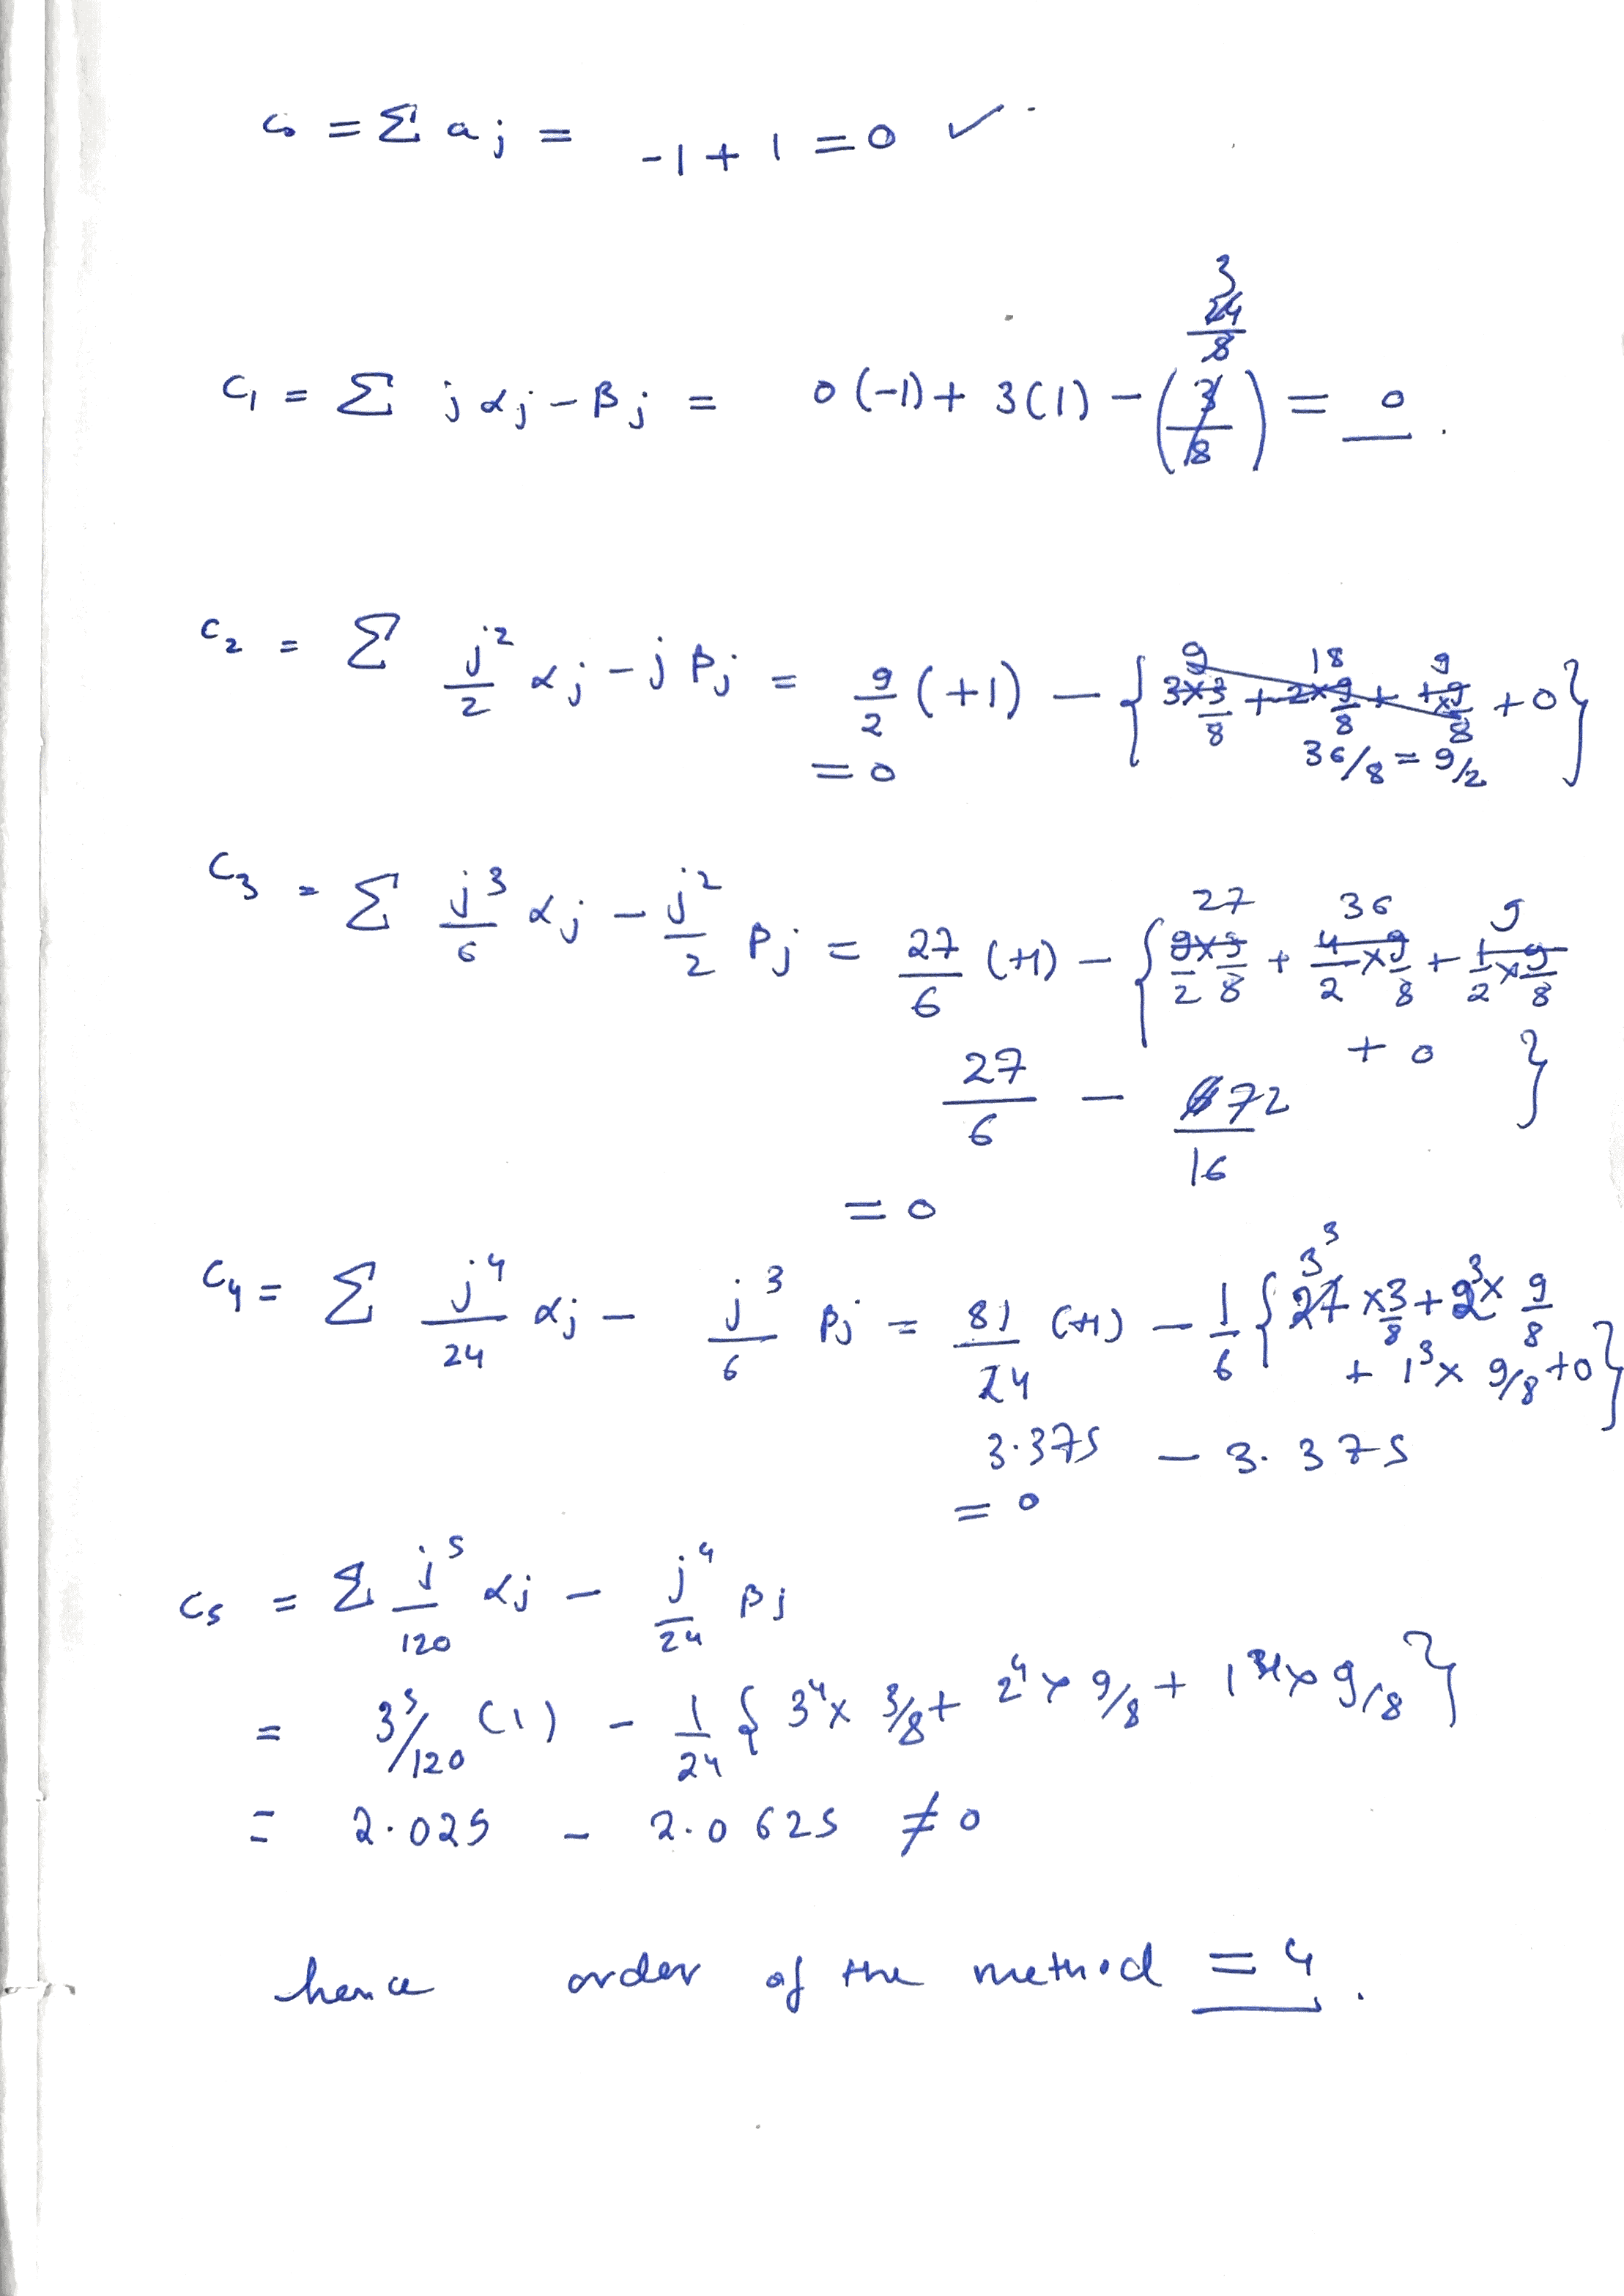 c₀ = Σ aj = -1 + 1 = 0 ✓
3
24/8
c₁ = Σ j αj - βj = 0(-1) + 3(1) - (3/8) = 0.
c₂ = Σ j²/2 αj - j βj = 9/2 (+1) - { 3×3/8 + 2×9/8 + 1×9/8 + 0 }
9 18 9
= 0 36/8 = 9/2
c₃ = Σ j³/6 αj - j²/2 βj = 27/6 (+1) - { 9/2×3/8 + 4/2×9/8 + 1/2×9/8
27 36 9
+ 0 }
27/6 - 72/16
= 0
c₄ = Σ j⁴/24 αj - j³/6 βj = 81/24 (+1) - 1/6 { 3³ ×3/8 + 2³× 9/8
+ 1³× 9/8 + 0 }
3.375 - 3.375
= 0
c₅ = Σ j⁵/120 αj - j⁴/24 βj
= 3⁵/120 (1) - 1/24 { 3⁴× 3/8 + 2⁴× 9/8 + 1⁴× 9/8 }
= 2.025 - 2.0625 ≠ 0
hence order of the method = 4.